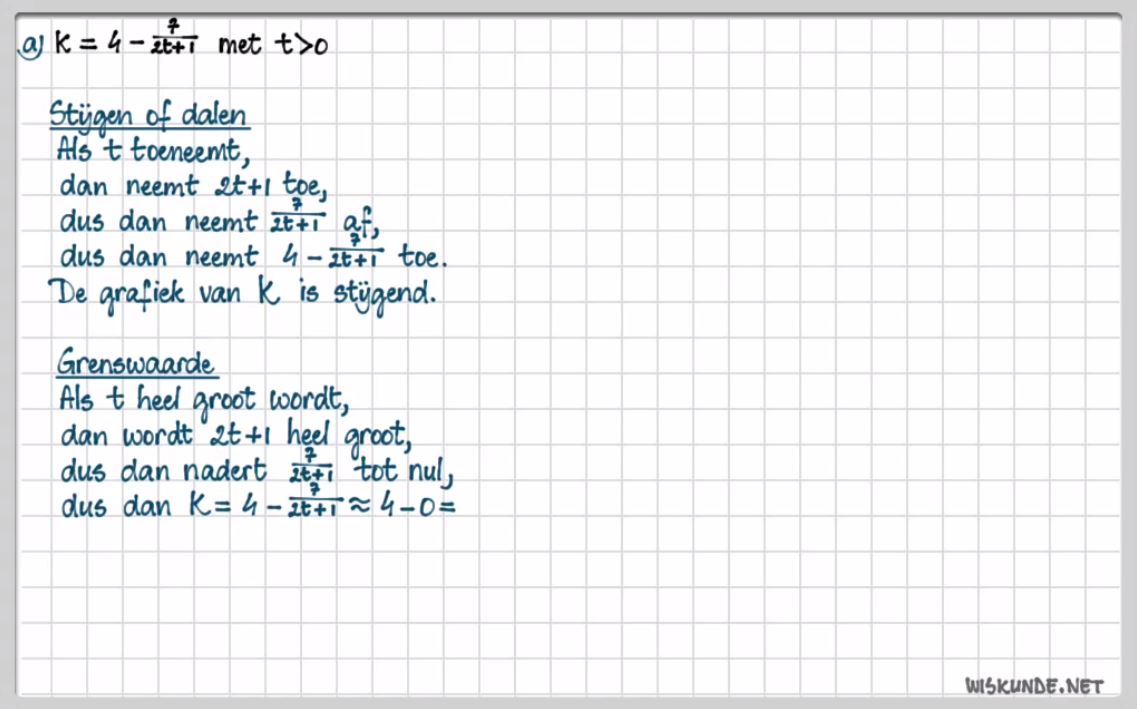 a) K = 4 - 7/(2t+1) met t>0
Stijgen of dalen
Als t toeneemt,
dan neemt 2t+1 toe,
dus dan neemt 7/(2t+1) af,
dus dan neemt 4 - 7/(2t+1) toe.
De grafiek van K is stijgend.
Grenswaarde
Als t heel groot wordt,
dan wordt 2t+1 heel groot,
dus dan nadert 7/(2t+1) tot nul,
dus dan K = 4 - 7/(2t+1) ≈ 4-0=
WISKUNDE.NET